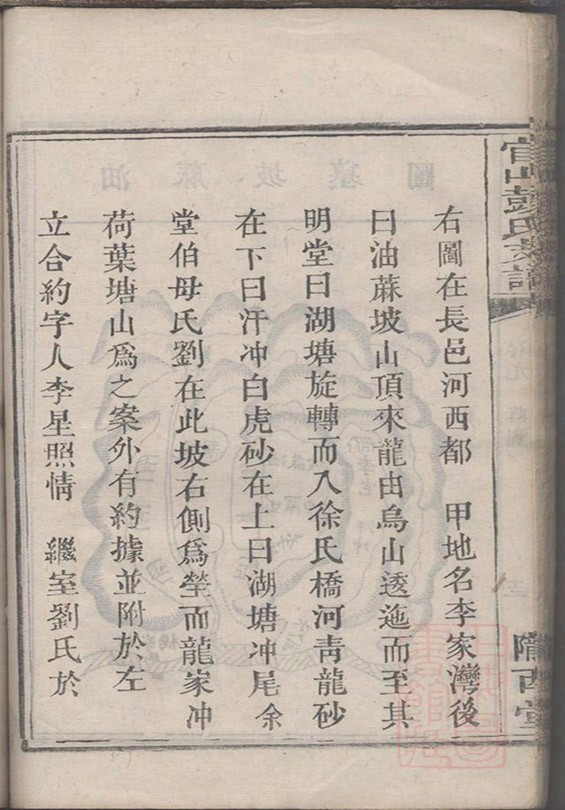 官山彭氏族譜
隴西堂
右圖在長邑河西都　甲地名李家灣後
曰油蔴坡山頂來龍由烏山透迤而至其
明堂曰湖塘旋轉而入徐氏橋河靑龍砂
在下曰汗冲白虎砂在上曰湖塘冲尾余
堂伯母氏劉在此坡右側爲塋而龍家冲
荷葉塘山爲之案外有約據並附於左
立合約字人李星照情　繼室劉氏於
油蔴坡墓圖